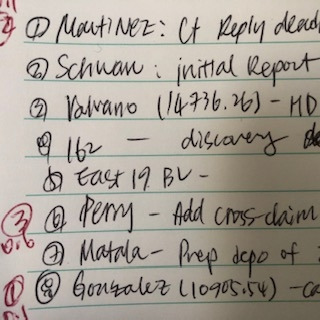 ① Martinez: Ct Reply dead
② Schwan: initial Report
③ (14736.26) - HD
④ 162 — discovery
⑤ East 19 BV -
③ ⑥ Perry - Add cross-claim
⑦ Matala - Prep depo of
① ⑧ Gonzalez (10905.54) -